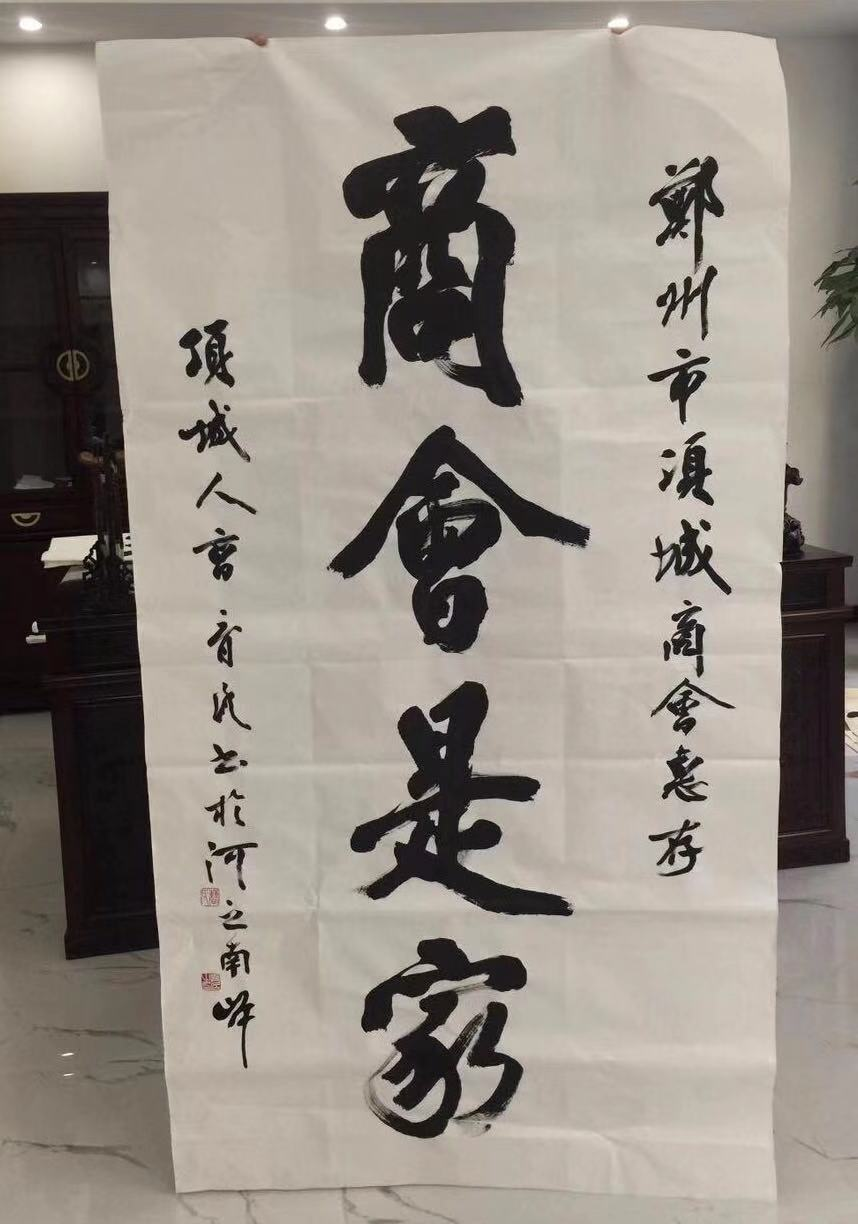 鄭州市項城商會惠存
商會是家
項城人曹育书於河之南